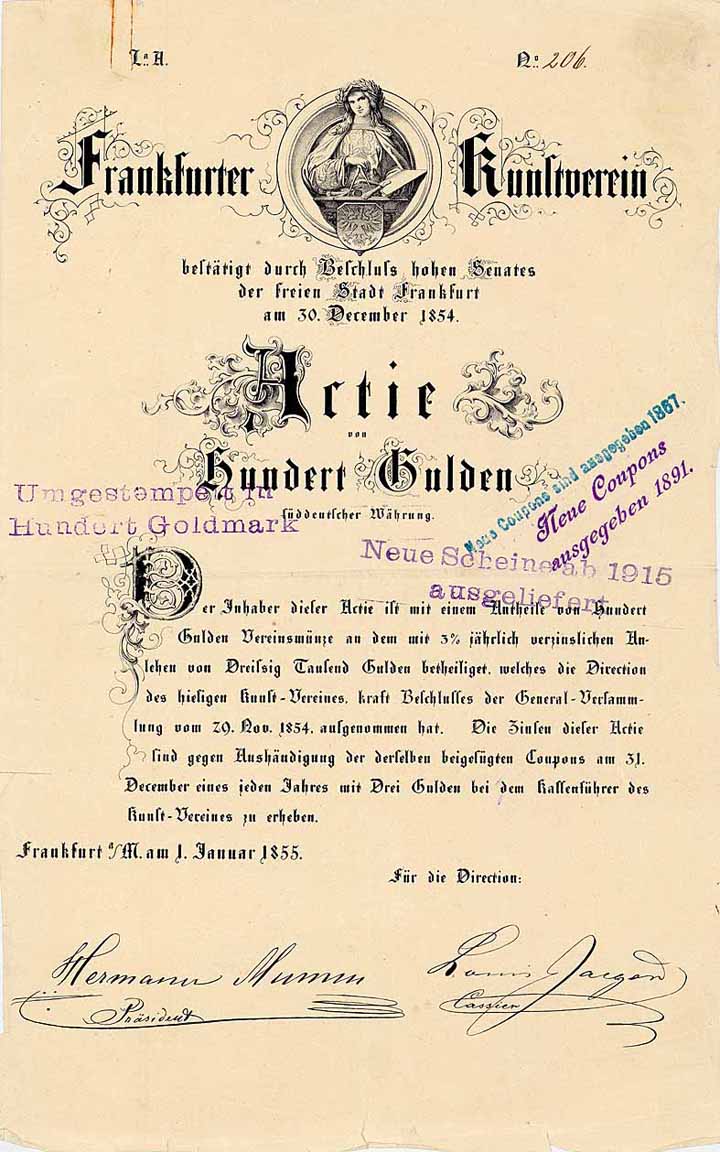 L.a A.
No. 206.
Frankfurter Kunstverein
bestätigt durch Beschluss hohen Senates
der freien Stadt Frankfurt
am 30. December 1854.
Actie
von
Hundert Gulden
süddeutscher Währung.
Umgestempelt in
Hundert Goldmark
Neue Coupons sind ausgegeben 1867.
Neue Coupons
ausgegeben 1891.
Neue Scheine ab 1915
ausgeliefert
Der Inhaber dieser Actie ist mit einem Antheile von Hundert
Gulden Vereinsmünze an dem mit 3% jährlich verzinslichen An-
lehen von Dreissig Tausend Gulden betheiliget, welches die Direction
des hiesigen Kunst-Vereines, kraft Beschlusses der General-Versamm-
lung vom 29. Nov. 1854, aufgenommen hat. Die Zinsen dieser Actie
sind gegen Aushändigung der derselben beigefügten Coupons am 31.
December eines jeden Jahres mit Drei Gulden bei dem Kassenführer des
Kunst-Vereines zu erheben.
Frankfurt a/M. am 1. Januar 1855.
Für die Direction:
Hermann Mumm
Präsident
Louis
Cassier